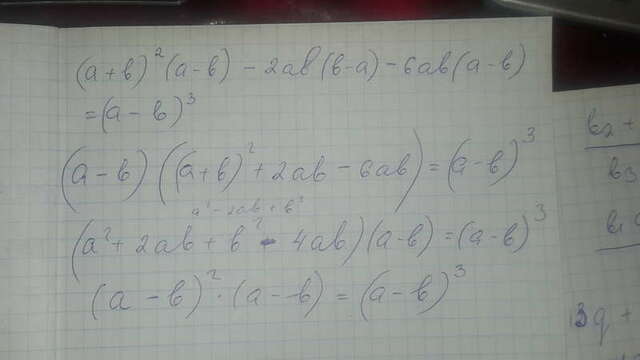 (a+b)²(a-b) - 2ab(b-a) - 6ab(a-b)
=(a-b)³
(a-b)((a+b)²+2ab-6ab)=(a-b)³
a²-2ab+b²
(a²+2ab+b²-4ab)(a-b)=(a-b)³
(a-b)²·(a-b)=(a-b)³